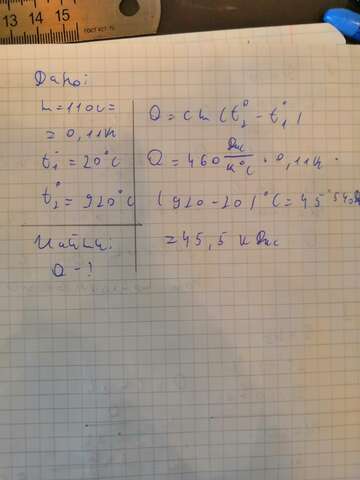 10
11
12
13
ГОСТ 427-75
Дано:
m=110г=
=0,11кг
t₁°=20°C
t₂°=920°C
Найти:
Q-?
Q=cm(t₂°-t₁°)
Q=460 Дж/кг°C · 0,11кг ·
(920-20)°C=45 540Дж
=45,5 кДж